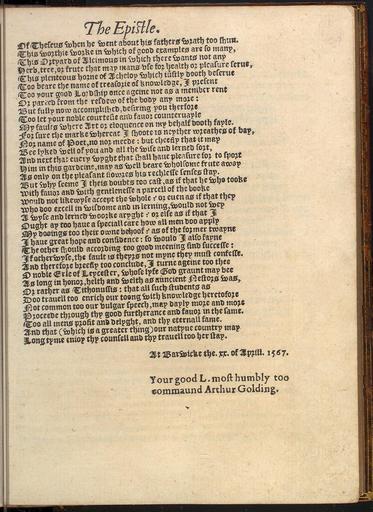 The Epistle.
Of Theseus when he went about his fathers wrath too shun.
This worthie worke in which of good examples are so many,
This Ortyard of Alcinous in which there wants not any
Herb, tree, or frute that may mans use for health or pleasure serve,
This plenteous horne of Acheloy which justly dooth deserve
Too beare the name of treasorie of knowledge, I present
Too your good Lordship once ageine not as a member rent
Or parted from the resdew of the body any more:
But fully now accomplished, desiring you therfore
Too let your noble courtesie and favor countervayle
My faults where Art or eloquence on my behalf dooth fayle.
For sure the marke whereat I shoote is neyther wreathes of bay,
Nor name of Poet, no nor meede: but cheefly that it may
Bee lyked well of you and all the wise and lerned sort,
And next that every wyght that shall have pleasure for to sport
Him in this gardeine, may as well beare wholsome frute away
As only on the pleasant flowres his rechlesse senses stay.
But why seeme I theis doubts too cast, as if that he who tooke
With favor and with gentlenesse a parcell of the booke
Would not likewyse accept the whole? or even as if that they
Who doo excell in wisdome and in lerning, would not wey
A wyse and lerned woorke aryght? or else as if that I
Ought ay too have a speciall care how all men doo apply
My dooings too their owne behoof? as of the former twayne
I have great hope and confidence: so would I also fayne
The other should according too good meening find successe:
If otherwyse, the fault is theyrs not myne they must confesse.
And therfore breefly too conclude, I turne ageine too thee
O noble Erle of Leycester, whose lyfe God graunt may bee
As long in honor, helth and welth as auncient Nestors was,
Or rather as Tithonussis: that all such students as
Doo travell too enrich our toong with knowledge heretofore
Not common too our vulgar speech, may dayly more and more
Proceede through thy good furtherance and favor in the same.
Too all mens profit and delyght, and thy eternall fame.
And that (which is a greater thing) our natyve country may
Long tyme enjoy thy counsell and thy travell too her stay.
At Barwicke the. xx. of Aprill. 1567.
Your good L. most humbly too
commaund Arthur Golding.